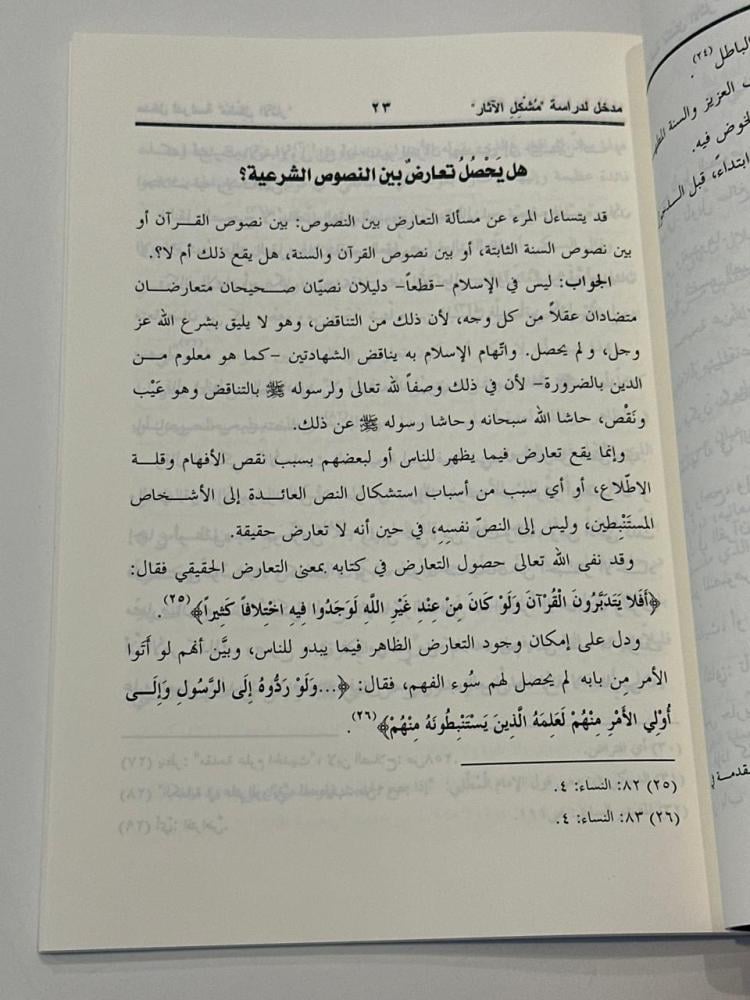 مدخل لدراسة "مُشْكِلِ الآثار" ٢٣
هل يَحْصُلُ تعارضٌ بين النصوص الشرعية؟
قد يتساءل المرء عن مسألة التعارض بين النصوص: بين نصوص القـرآن أو
بين نصوص السنة الثابتة، أو بين نصوص القرآن والسنة، هل يقع ذلك أم لا؟.
الجواب: ليس في الإسلام –قطعاً– دليلان نصيّان صـحيحان متعارضـان
متضادان عقلاً من كل وجه، لأن ذلك من التناقض، وهو لا يليق بشرع الله عز
وجل، ولم يحصل. واتّهام الإسلام به يناقض الشهادتين –كما هو معلوم مـن
الدين بالضرورة– لأن في ذلك وصفاً لله تعالى ولرسوله ﷺ بالتناقض وهو عَيْب
ونَقْص، حاشا الله سبحانه وحاشا رسوله ﷺ عن ذلك.
وإنما يقع تعارض فيما يظهر للناس أو لبعضهم بسبب نقص الأفهام وقلـة
الاطّلاع، أو أي سبب من أسباب استشكال النص العائـدة إلى الأشـخاص
المستَنْبِطين، وليس إلى النصّ نفسِهِ، في حين أنه لا تعارض حقيقة.
وقد نفى الله تعالى حصول التعارض في كتابه بمعنى التعارض الحقيقي فقال:
﴿أَفَلا يَتَدَبَّرُونَ الْقُرْآنَ وَلَوْ كَانَ مِنْ عِنْدِ غَيْرِ اللَّهِ لَوَجَدُوا فِيهِ اخْتِلافاً كَثِيراً﴾(٢٥).
ودل على إمكان وجود التعارض الظاهر فيما يبدو للناس، وبيَّن أنهم لو أَتَوا
الأمر مِن بابه لم يحصل لهم سُوء الفهم، فقال: ﴿...وَلَوْ رَدُّوهُ إِلَى الرَّسُولِ وَإِلَـى
أُوْلِي الأَمْرِ مِنْهُمْ لَعَلِمَهُ الَّذِينَ يَسْتَنْبِطُونَهُ مِنْهُمْ﴾(٢٦).
(٢٥) ٨٢: النساء: ٤.
(٢٦) ٨٣: النساء: ٤.
الباطل (٢٤).
العزيز والسنة
الخوض فيه.
ابتداءً، قبل